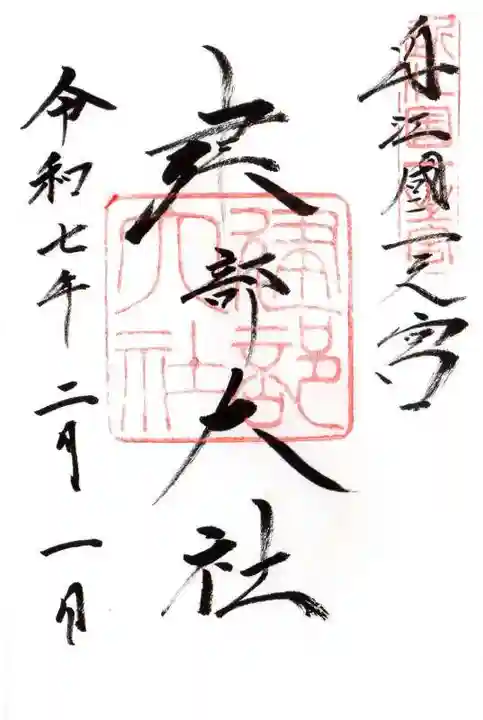 近江國一之宮
建部大社
令和七年二月一日
建部大社